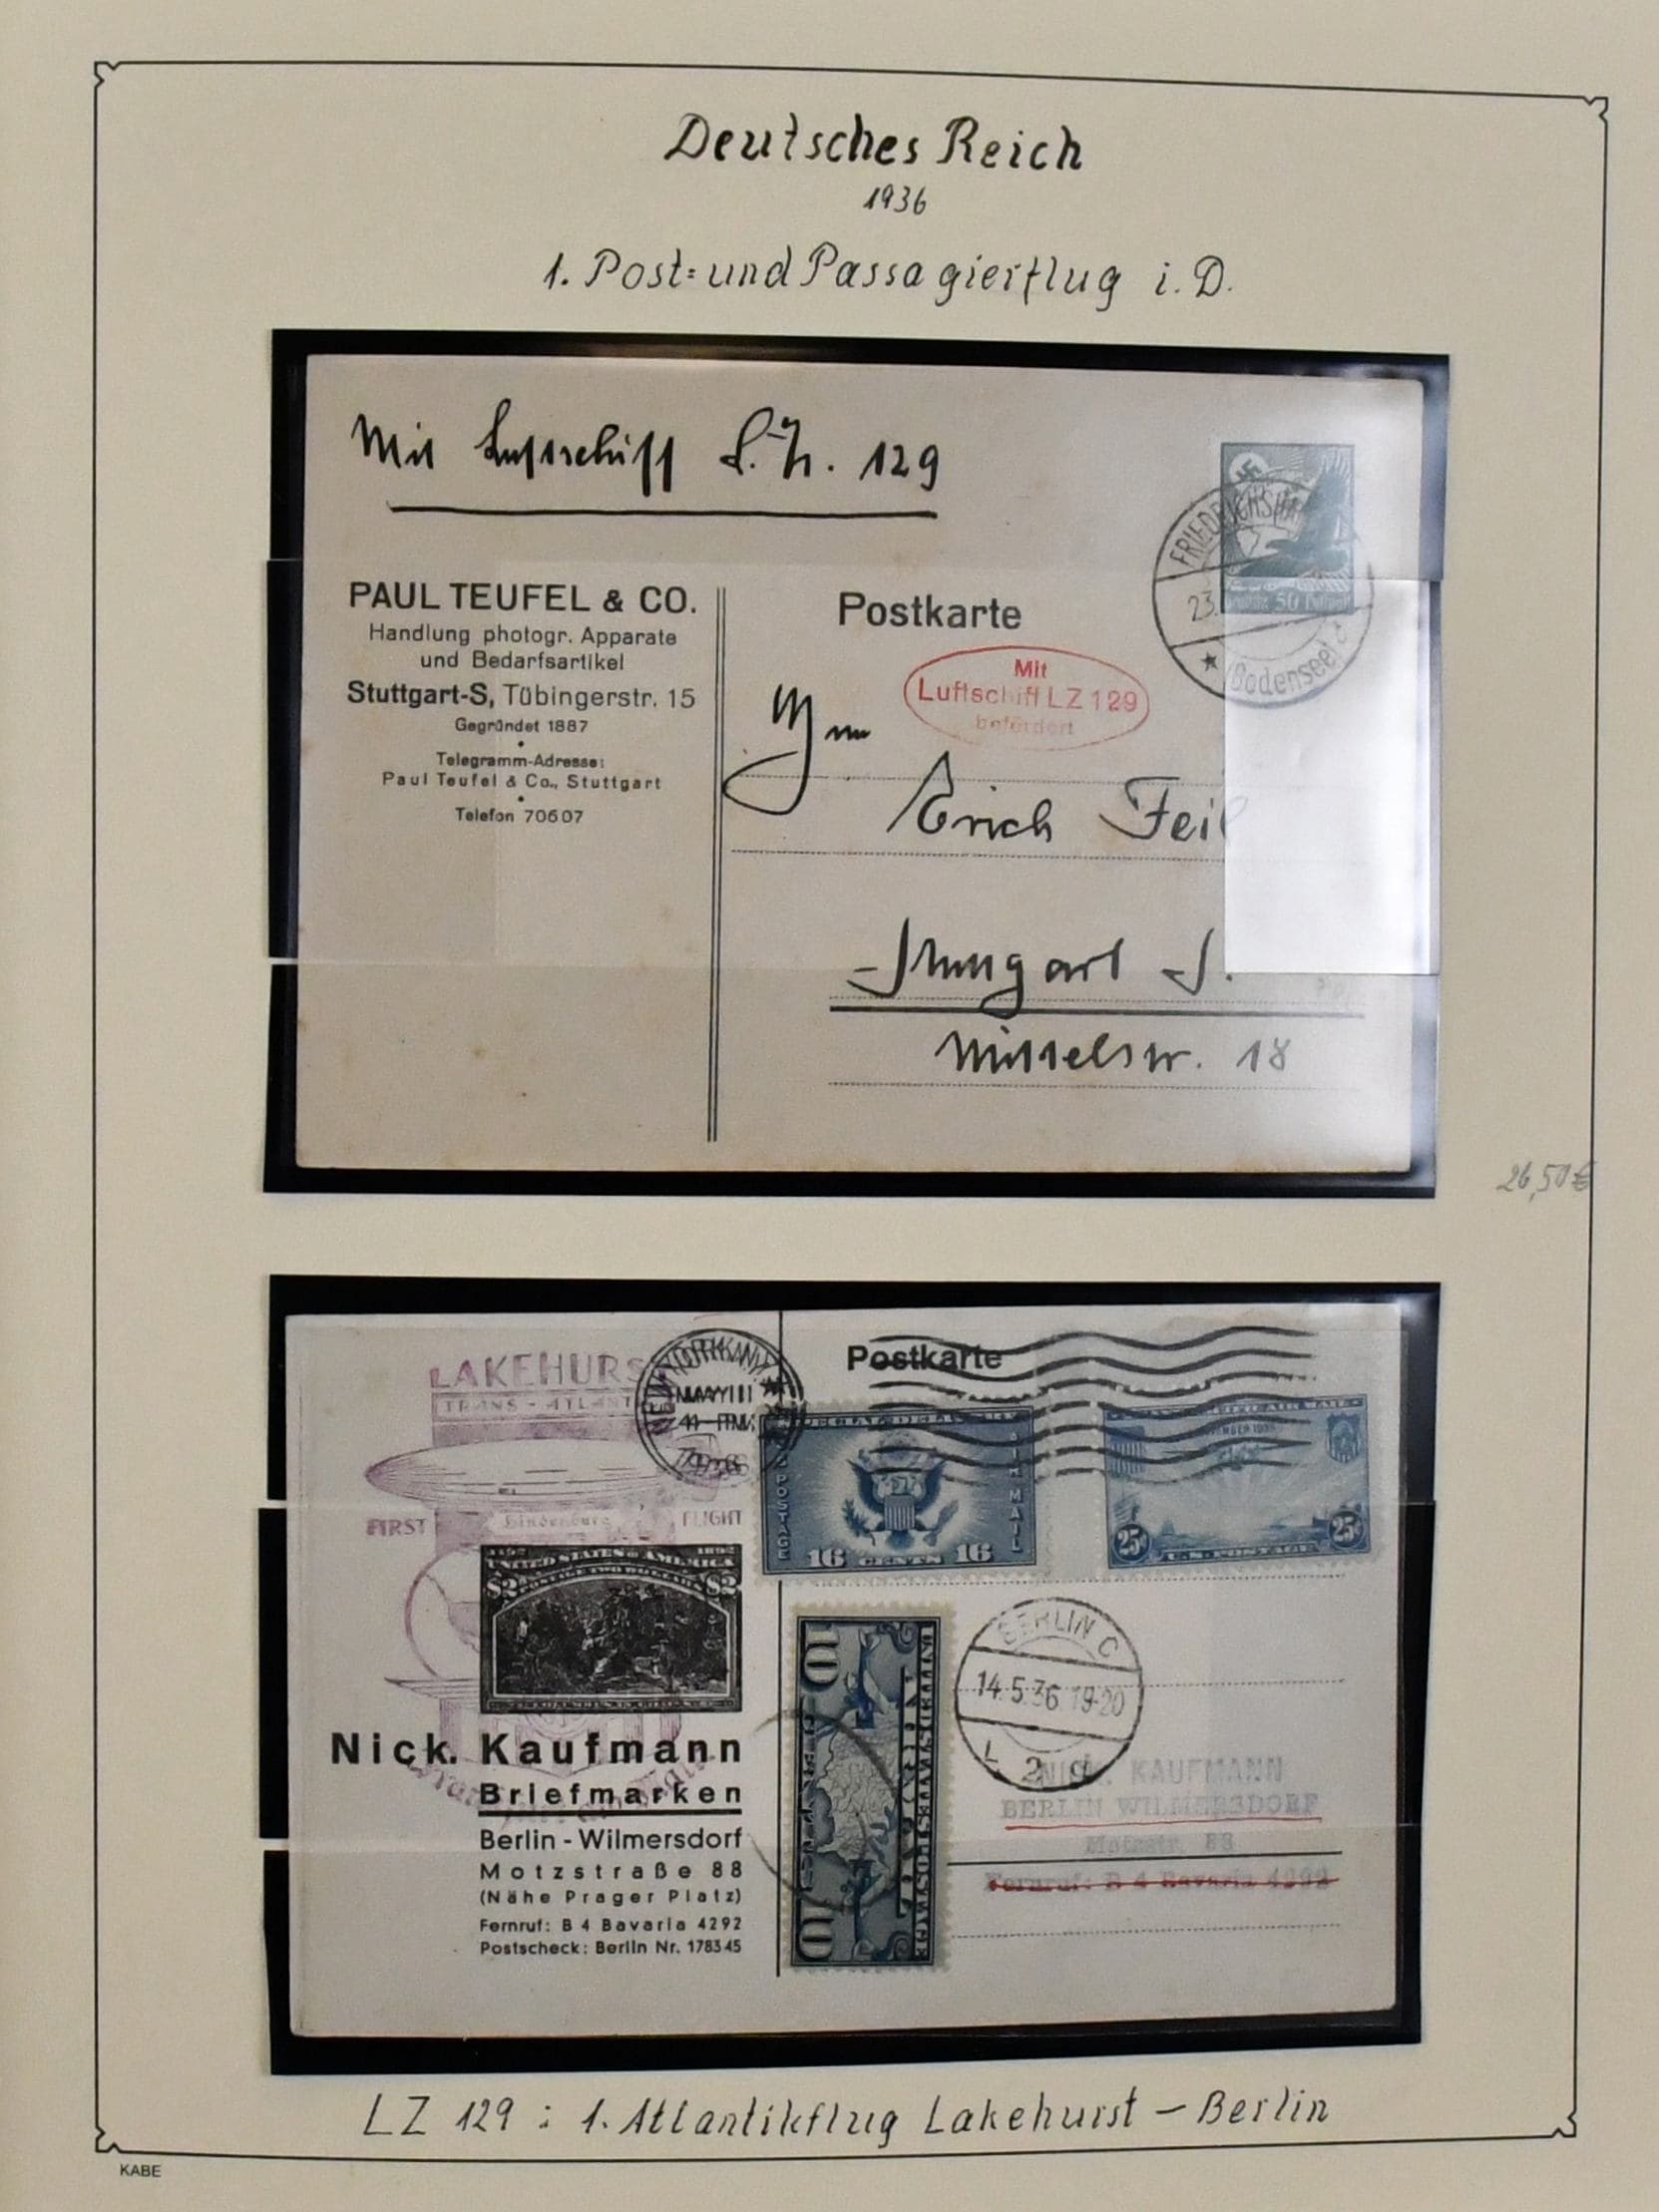 Deutsches Reich
1936
1. Post= und Passagierflug i. D.
Mit Luftschiff L.Z. 129
PAUL TEUFEL & CO.
Handlung photogr. Apparate
und Bedarfsartikel
Stuttgart-S, Tübingerstr. 15
Gegründet 1887
Telegramm-Adresse:
Paul Teufel & Co., Stuttgart
Telefon 70607
Postkarte
Mit
Luftschiff LZ 129
befördert
23.
(Bodensee) c
50
Erich Feil
Stuttgart S.
Mittelstr. 18
26,50€
LAKEHURS
TRANS-ATLANT
FIRST Hindenburg FLIGHT
Postkarte
SPECIAL DELIVERY
POSTAGE
AIR MAIL
16 CENTS 16
25¢ 25¢
U.S. POSTAGE
UNITED STATES OF AMERICA
$2 $2
10
10
UNITED STATES POSTAGE
BERLIN C
14.5.36.19-20
L 2 g
Nick. Kaufmann
Briefmarken
Berlin - Wilmersdorf
Motzstraße 88
(Nähe Prager Platz)
Fernruf: B 4 Bavaria 4292
Postscheck: Berlin Nr. 178345
NICK. KAUFMANN
BERLIN WILMERSDORF
Motzstr. 88
Fernruf: B 4 Bavaria 4292
LZ 129 : 1. Atlantikflug Lakehurst – Berlin
KABE